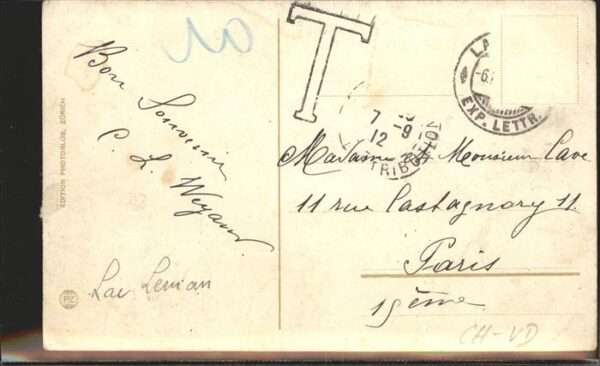 a1
T
Bon Souvenir
C. L. Weyand
EDITION PHOTOGLOB, ZÜRICH
Lac Leman
PZ
LA
-6.
EXP. LETTR.
7
12 9
DISTRIBUTION
Madame & Monsieur Cave
11 rue Castagnary 11
Paris
15ème
CH-VD